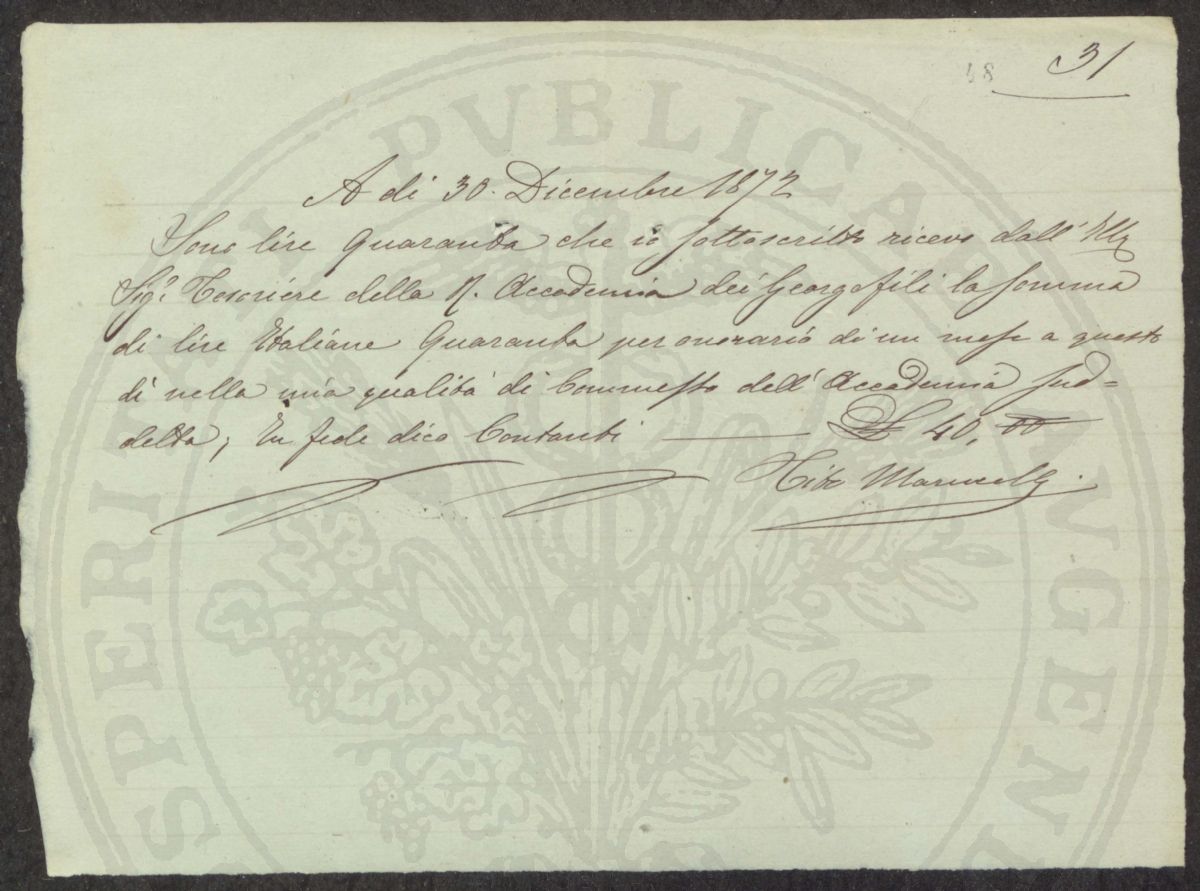 48 31
A di 30. Dicembre 1872
Sono lire Quaranta che io sottoscritto ricevo dall' Ill
Sigr Tesoriere della R. Accademia dei Georgofili la somma
di lire Italiane Quaranta per onorario di un mese a questo
dì nella mia qualità di Commesso dell' Accademia sud=
detta; In fede dico Contanti —— £ 40, 00
Tito Marucelli
PROSPERITATI PVBLICAE AVGENDAE